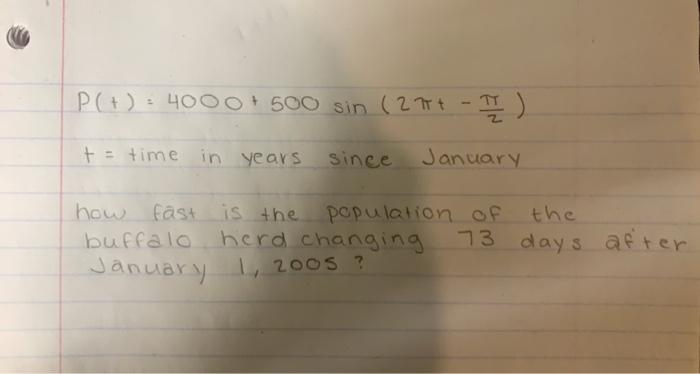 P(t) = 4000 + 500 sin (2πt - π/2)
t = time in years since January
how fast is the population of the
buffalo herd changing 73 days after
January 1, 2005 ?